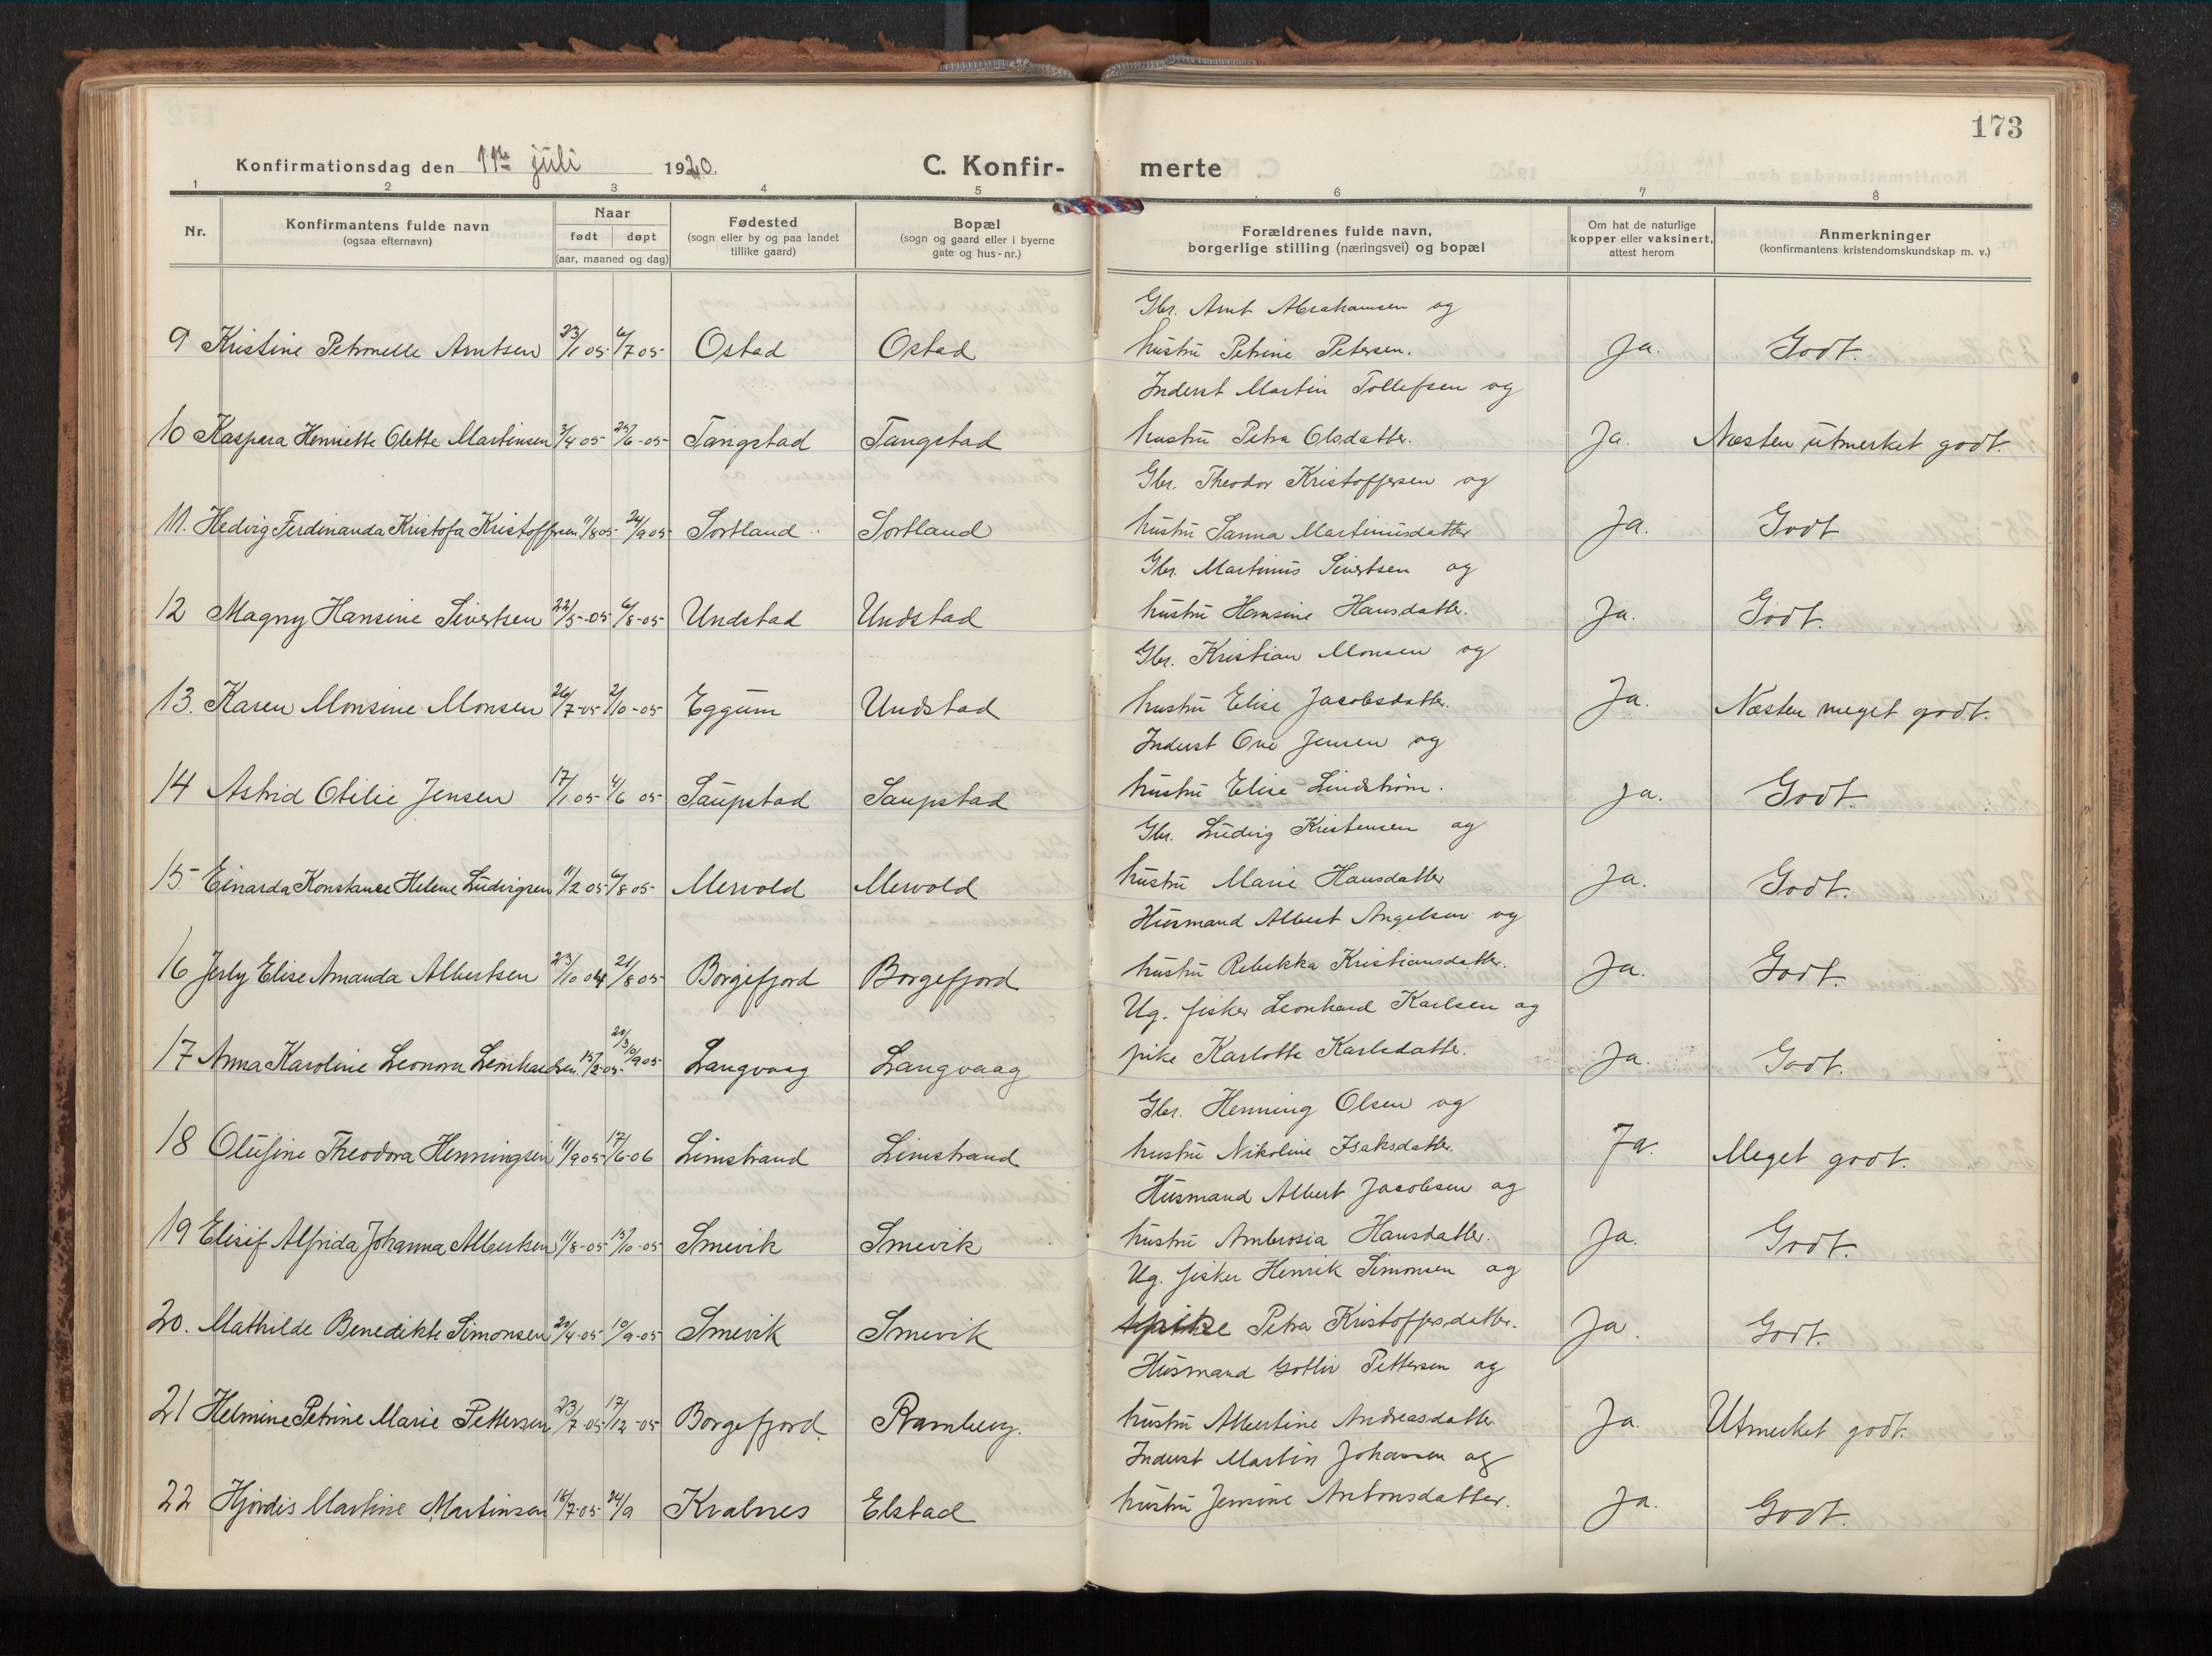 173
Konfirmationsdag den 11te juli 1920.
C. Konfir- merte
1 2 3 4 5 6 7 8
Nr.
Konfirmantens fulde navn
(ogsaa efternavn)
Naar
født døpt
(aar, maaned og dag)
Fødested
(sogn eller by og paa landet
tillike gaard)
Bopæl
(sogn og gaard eller i byerne
gate og hus-nr.)
Forældrenes fulde navn,
borgerlige stilling (næringsvei) og bopæl
Om hat de naturlige
kopper eller vaksinert,
attest herom
Anmerkninger
(konfirmantens kristendomskundskap m. v.)
Gbr. Arnt Abrahamsen og
9 Kristine Petronelle Arntsen 23/1 05 6/7 05 Ostad Ostad hustru Petrine Petersen. Ja. Godt.
Inderst Martin Tollefsen og
10 Kaspara Henriette Olette Martinsen 3/4 05 25/6-05 Tangstad Tangstad hustru Petra Olsdatter. Ja. Næsten utmerket godt.
Gbr. Theodor Kristoffersen og
11. Hedvig Ferdinanda Kristofa Kristoffersen 11/8 05 24/9 05 Sortland Sortland hustru Sanna Martinusdatter Ja. Godt
Gbr. Martinus Sivertsen og
12 Magny Hansine Sivertsen 22/5-05 6/8-05 Undstad Undstad hustru Hansine Hansdatter. Ja. Godt.
Gbr. Kristian Monsen og
13. Karen Monsine Monsen 26/7-05 2/10-05 Eggum Undstad hustru Elise Jacobsdatter. Ja. Næsten meget godt.
Inderst Ove Jensen og
14 Astrid Otilie Jensen 17/1 05 4/6 05 Saupstad Saupstad hustru Elise Lindstrøm. Ja. Godt.
Gbr. Ludvig Kristensen og
15 Einarda Konstanse Helene Ludvigsen 11/2 05 6/8 05 Mervold Mervold hustru Marie Hansdatter Ja. Godt.
Husmand Albert Angelsen og
16 Jerly Elise Amanda Albertsen 23/10 04 21/8 05 Borgefjord Borgefjord hustru Rebekka Kristiansdatter. Ja. Godt.
Ug. fisker Leonhard Karlsen og
17 Anna Karoline Leonora Leonhardsen. 15/2-05 20/3 10/9 05 Langvaag Langvaag pike Karlotte Karlsdatter. Ja. Godt.
Gbr. Henning Olsen og
18 Olufine Theodora Henningsen 11/9 05 17/6-06 Limstrand Limstrand hustru Nikoline Isaksdatter. Ja. Meget godt.
Husmand Albert Jacobsen og
19 Elisif Alfrida Johanna Albertsen 11/8-05 15/10-05 Smevik Smevik hustru Ambrosia Hansdatter. Ja. Godt.
Ug. fisker Henrik Simonsen og
20. Mathilde Benedikte Simonsen 20/4-05 10/9-05 Smevik Smevik pike Petra Kristoffersdatter. Ja. Godt.
Husmand Gotliv Pettersen og
21 Helmine Petrine Marie Pettersen 23/7-05 17/12-05 Borgefjord. Ramberg. hustru Albertine Andreasdatter Ja. Utmerket godt.
Inderst Martin Johansen og
22 Hjørdis Martine Martinsen 16/7-05 24/9 Kvalnes Elstad hustru Jensine Antonsdatter. Ja. Godt.